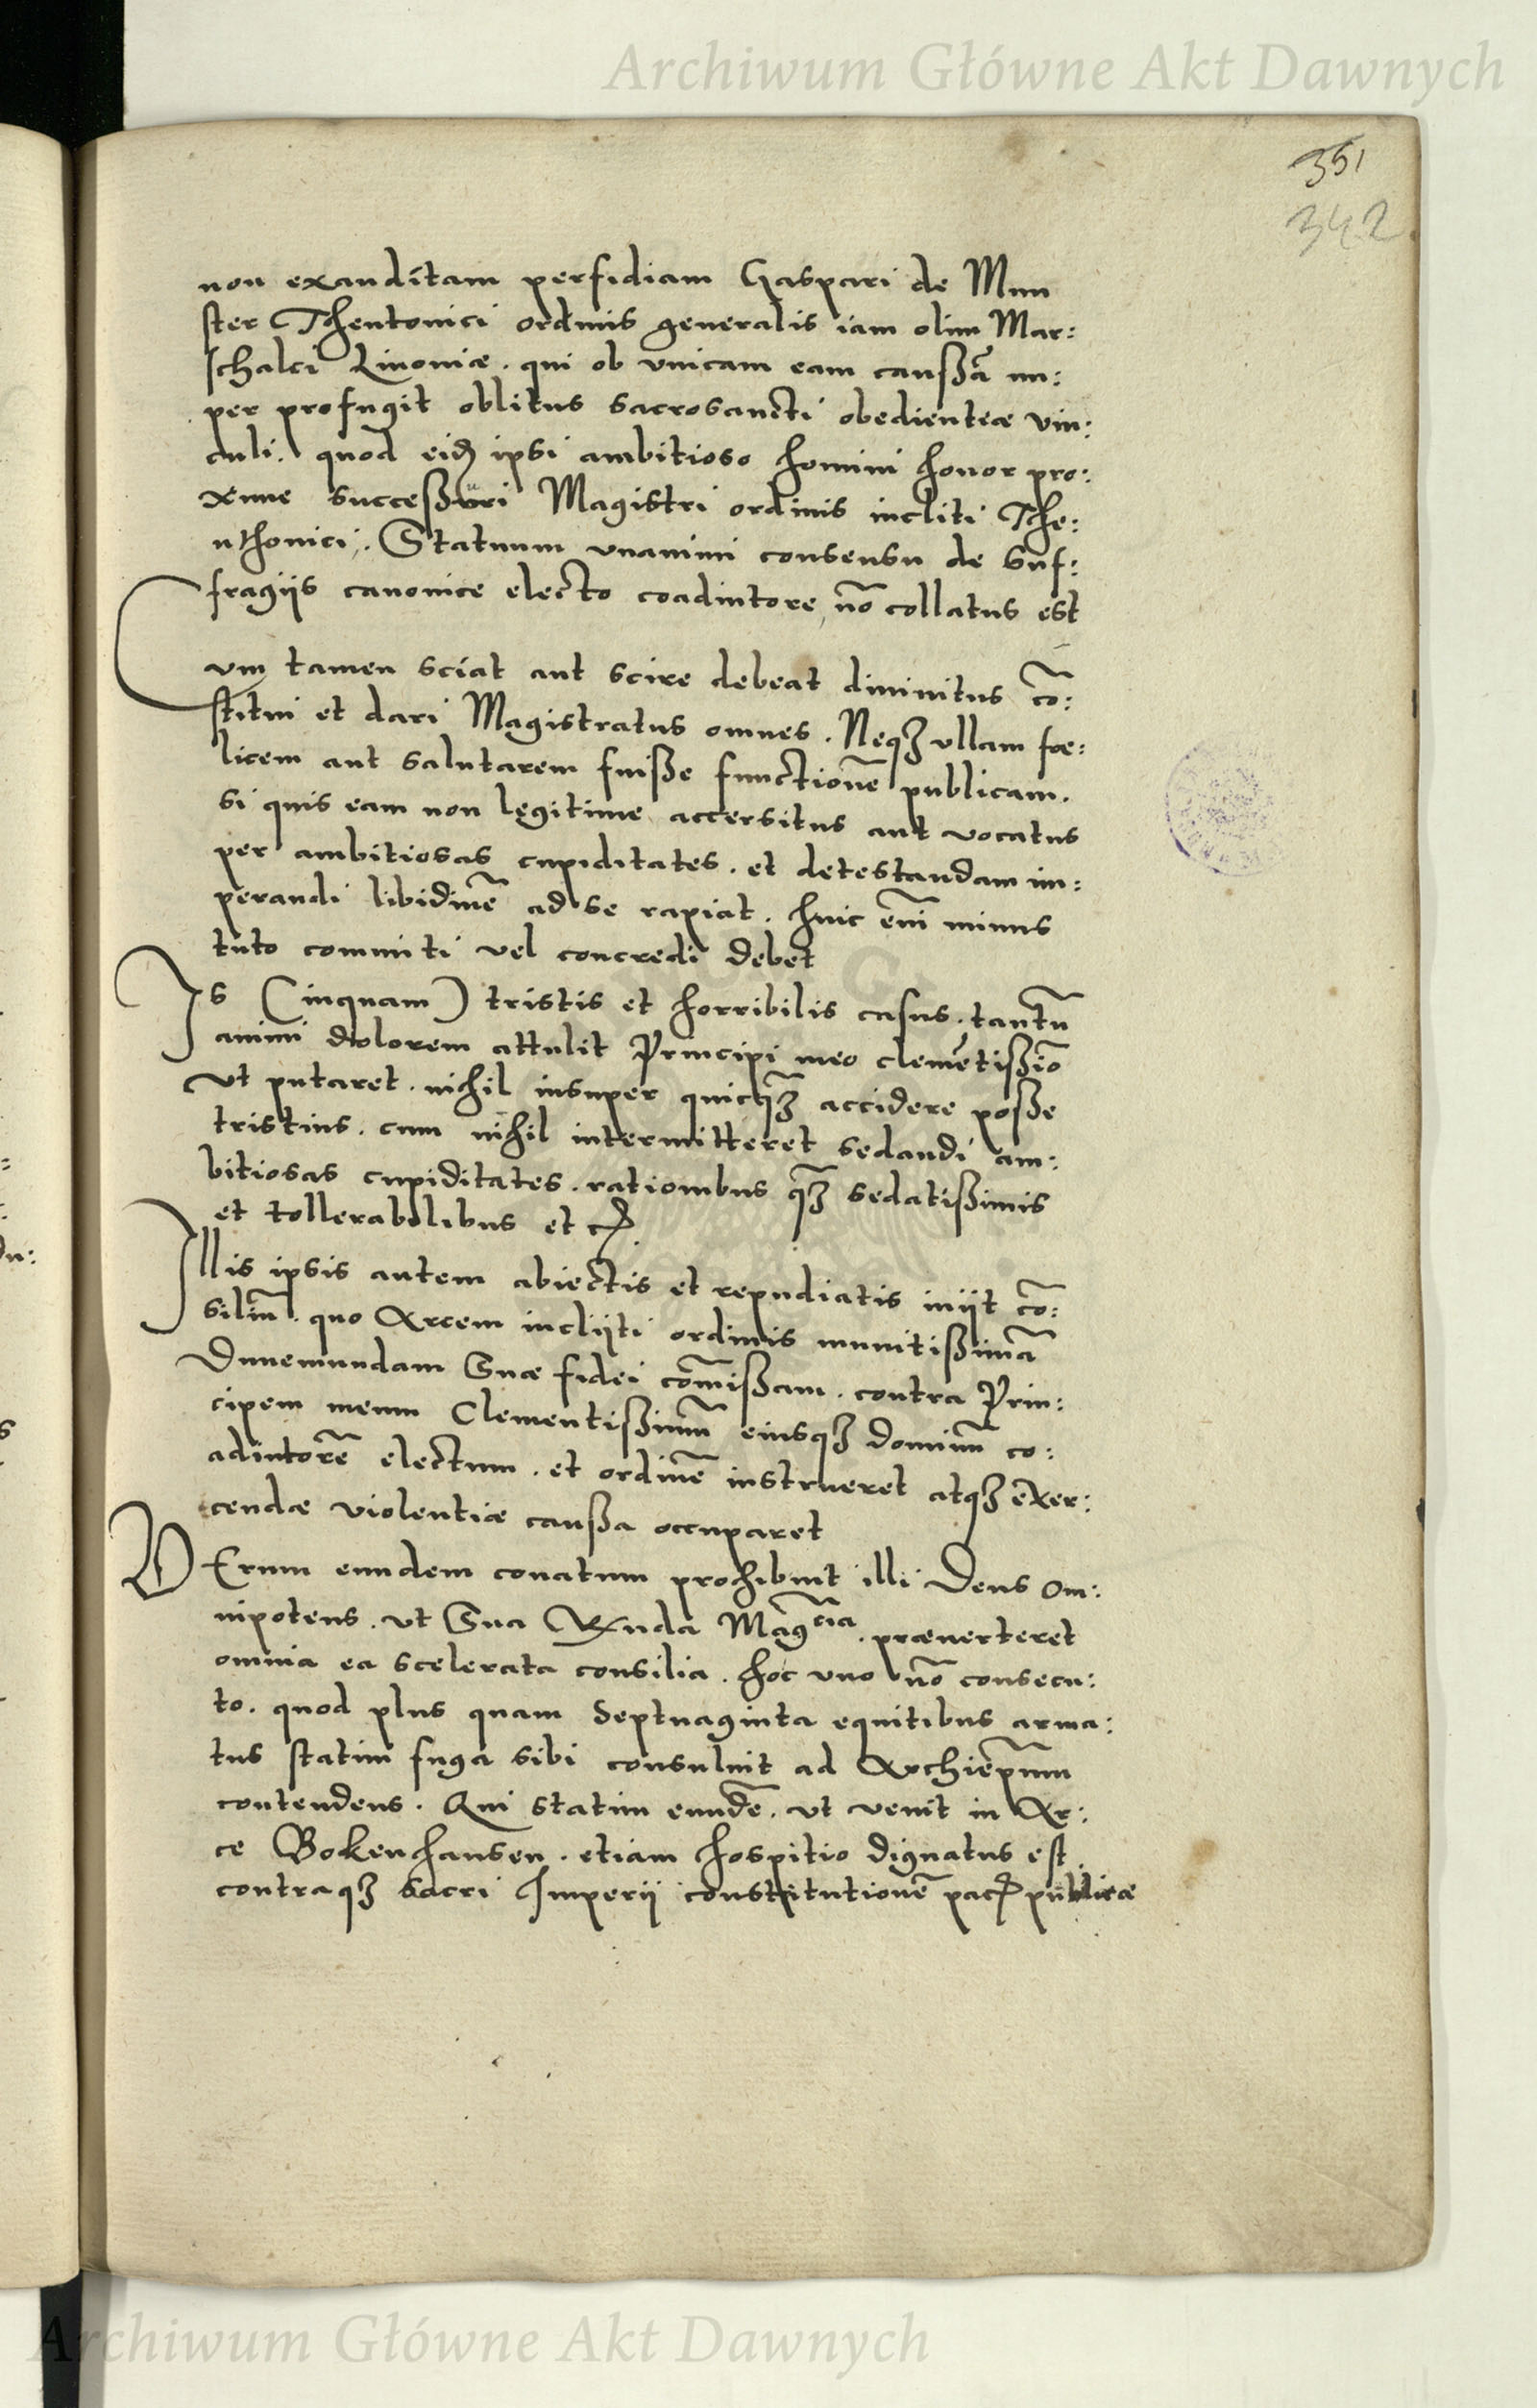 Archiwum Główne Akt Dawnych
351
342
non exauditam perfidiam Gaspari de Mun
ster Theutonici ordinis generalis iam olim Mar:
schalci Liuoniæ. qui ob vnicam eam caussã nu:
per profugit oblitus sacrosancti obedientiæ vin:
culi. quod eidẽ ipsi ambitioso homini honor pro:
xime successuri Magistri ordinis incliti The:
uthonici. Statuum vnanimi consensu de suf:
fragijs canonice electo coadiutore, nõ collatus est
Cum tamen sciat aut scire debeat diuinitus cõ:
stitui et dari Magistratus omnes. Neqꝫ ullam fœ:
licem aut salutarem fuisse functionẽ publicam.
si quis eam non legitime accersitus aut vocatus
per ambitiosas cupiditates. et detestandam im:
perandi libidinẽ ad se rapiat. huic em̃ minus
tuto committi vel concredi debet
Is (inquam) tristis et horribilis casus. tantũ
animi dolorem attulit Principi meo clemẽtissiõ
ut putaret. nihil insuper quicqꝫ accidere posse
tristius. cum nihil intermitteret sedandi am:
bitiosas cupiditates. rationibus qꝫ sedatissimis
et tollerabilibus et cꝭ.
Illis ipsis autem abiectis et repudiatis inijt cõ:
siliũ. quo Arcem inclijti ordinis munitissimã
Dunemundam Suæ fidei com̃issam. contra Prin:
cipem meum Clementissimũ eiusqꝫ dominũ co:
adiutorẽ electum. et ordinẽ instrueret atqꝫ exer:
cendæ violentiæ caussa occuparet
VErum eundem conatum prohibuit illi Deus om:
nipotens. ut Sua Rnda Magᶜⁱᵃ. præuerteret
omnia ea scelerata consilia. hoc uno nõ consecu:
to. quod plus quam Septuaginta equitibus arma:
tus statim fuga sibi consuluit ad Archiep̃um
contendens. Qui statim eundẽ. ut venit in Ar:
ce Kokenhausen. etiam hospitio dignatus est.
contraqꝫ Sacri Imperij constitutionẽ pacꝭ publicæ
Archiwum Główne Akt Dawnych